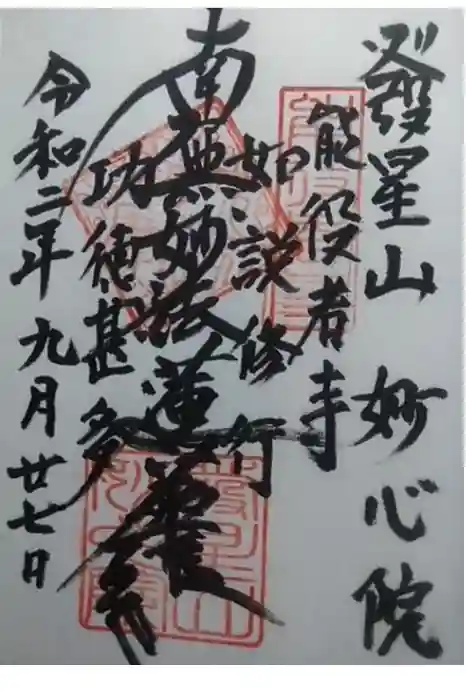 發星山 妙心院
能役者寺
如説修行
南無妙法蓮華経
功徳甚多
令和二年九月廿七日